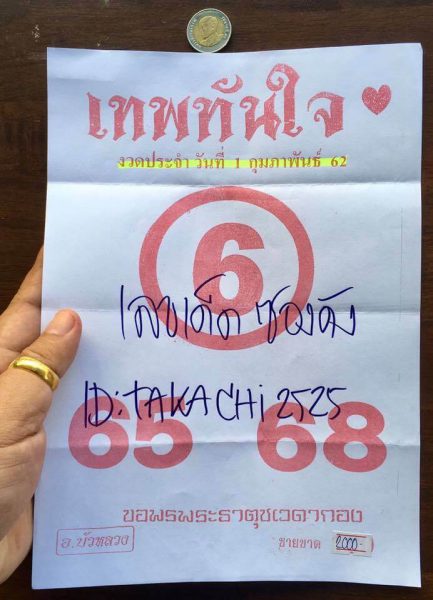 เทพทันใจ
งวดประจำ วันที่ 1 กุมภาพันธ์ 62
6
เลขเด็ด ซองดัง
ID: TAKACHi 2525
65 68
ขอพรพระธาตุชเวดากอง
อ.บัวหลวง
ขายขาด 2,000.-